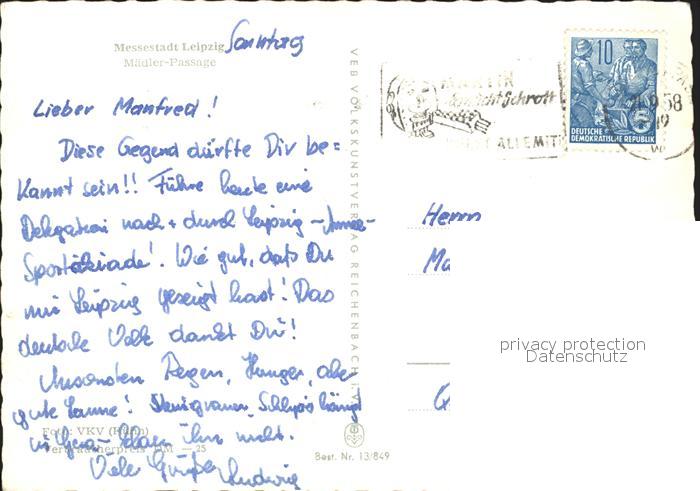 Messestadt Leipzig Sonntag
Mädler-Passage
Lieber Manfred!
Diese Gegend dürfte Dir be=
kannt sein!! Führe heute eine
Delegation nach + durch Leipzig - Armee-
Sportakiade! Wie gut, daß Du
mir Leipzig gezeigt hast! Das
deutsche Volk dankt Dir!
Ansonsten Regen, Hunger, aber
gute Laune! Schlips hängt
in Gera - ihn nicht.
Viele Grüße
Ludwig
Foto: VKV (Kühn)
Verbraucherpreis DM —25
VEB VOLKSKUNSTVERLAG REICHENBACH I. V.
Best. Nr. 13/849
MARTIN
Schrott
ALLE MIT
58
10
5
DEUTSCHE
DEMOKRATISCHE REPUBLIK
Herrn
Ma
G
privacy protection
Datenschutz